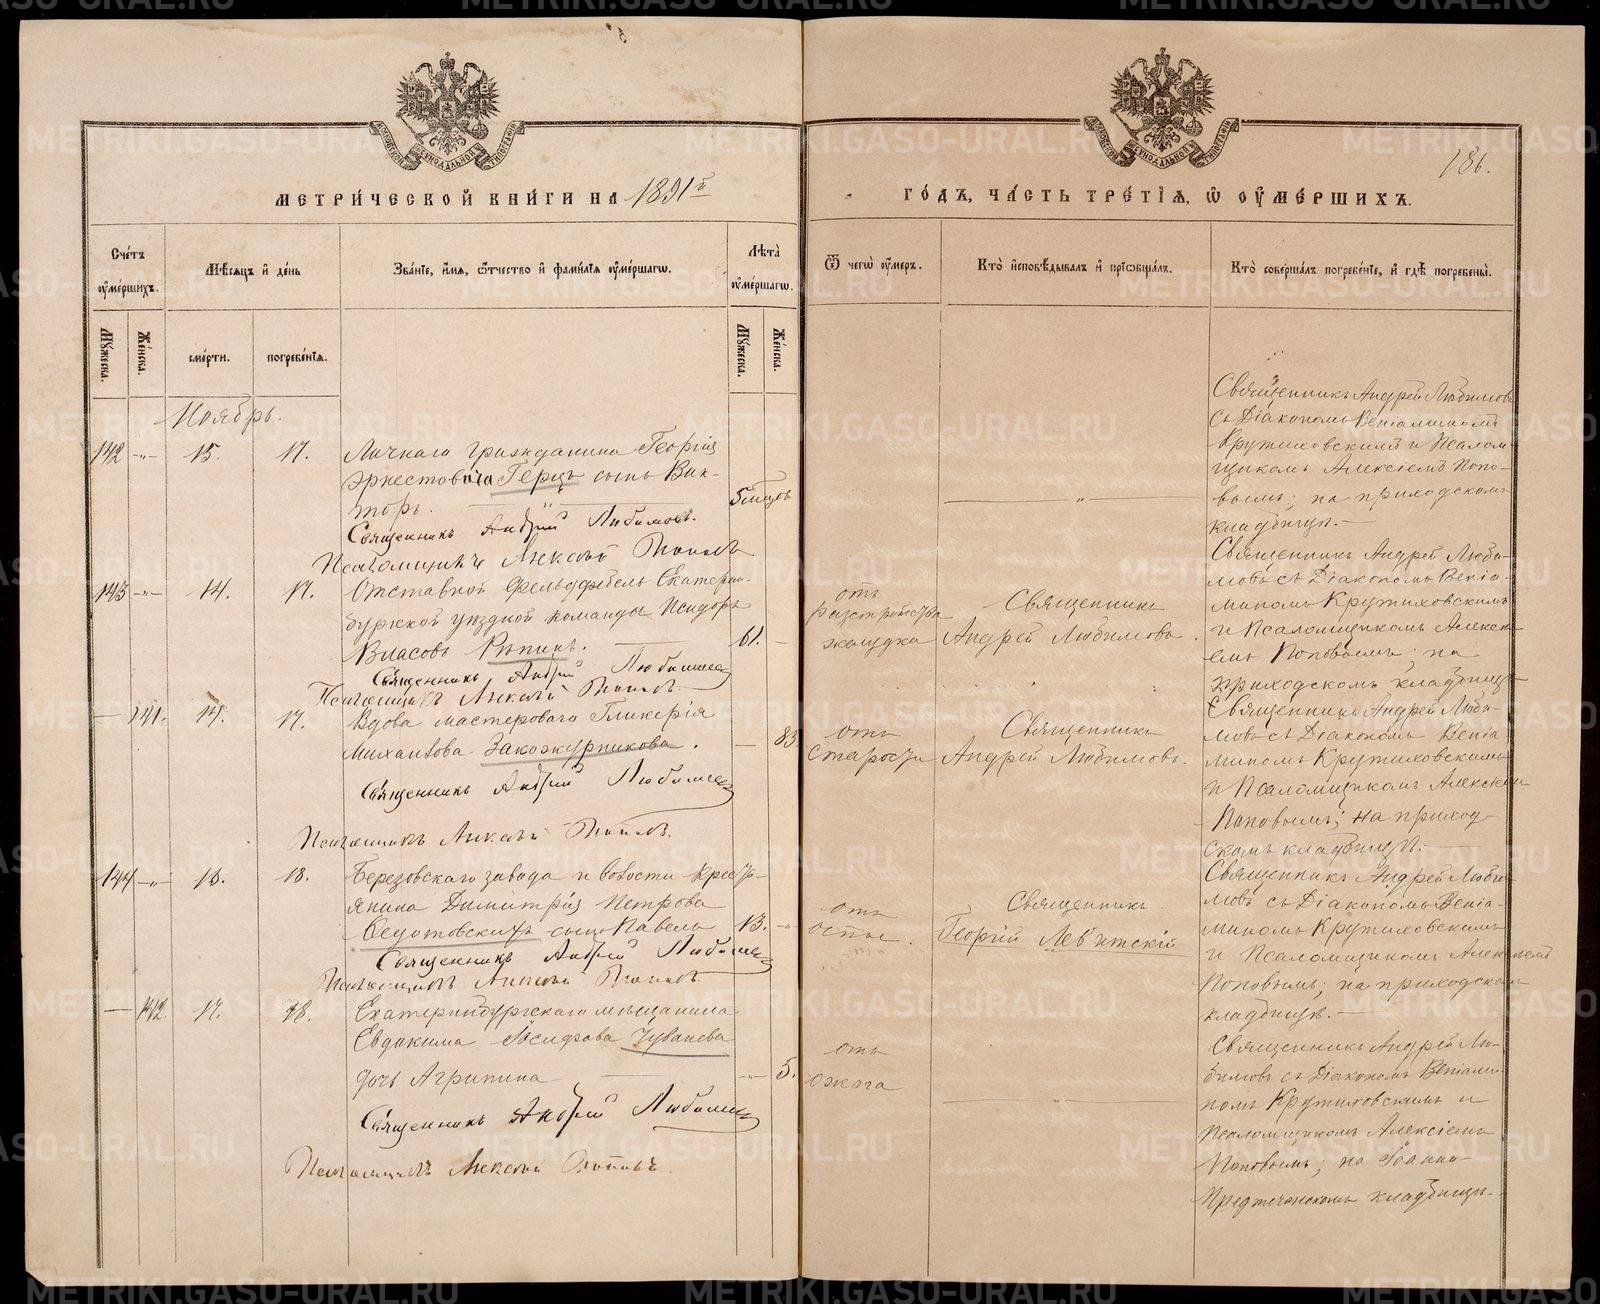 МЕТРИ́ЧЕСКОЙ КНИ́ГИ НА 1891й
ГО́ДЪ, ЧА́СТЬ ТРЕ́ТІЯ, Ѿ ОУМЕ́РШИХЪ.
186.
Сче́тъ оуме́ршихъ.
Мѣсяцъ и де́нь
Зва́ніе, и́мя, о́тчество и фами́лія оуме́ршагѡ.
Лѣта̀ оуме́ршагѡ.
Ѿ чегѡ̀ оу́меръ.
Кто̀ исповѣ́дывалъ и пріѡбща́лъ.
Кто̀ соверша́лъ погребе́ніе, и гдѣ̀ погребены̀.
Му́жеска.
Же́нска.
сме́рти.
погребе́нія.
Му́жеска.
Же́нска.
Ноябрь.
142 -"- 15. 17.
Личнаго гражданина Георгія
Эрнестовича Герцъ сынъ Вик-
торъ.
5 мцовъ
Священникъ Андрей Любимовъ.
Псаломщикъ Алексѣй Поповъ
Священникъ Андрей Любимовъ
съ Діакономъ Веніаминомъ
Крутиховскимъ и Псалом-
щикомъ Алексіемъ Попо-
вымъ; на приходскомъ
кладбищѣ.
143 -"- 14. 17.
Отставной Фельдфебель Екатерин-
бургской уѣздной команды Исидоръ
Власовъ Рѣпинъ.
61.
Священникъ Андрей Любимовъ
Псаломщикъ Алексѣй Поповъ.
отъ
разстройства
желудка
Священникъ
Андрей Любимовъ.
Священникъ Андрей Люби-
мовъ съ Діакономъ Веніа-
миномъ Крутиховскимъ
и Псаломщикомъ Алексі-
емъ Поповымъ; на
приходскомъ кладбищѣ
141. 14. 17.
Вдова мастерового Гликерія
Михайлова Закожурникова.
83.
Священникъ Андрей Любимовъ
Псаломщикъ Алексѣй Поповъ.
отъ
старости
Священникъ
Андрей Любимовъ.
Священникъ Андрей Люби-
мовъ съ Діакономъ Веніа
миномъ Крутиховскимъ
и Псаломщикомъ Алексіемъ
Поповымъ; на приход-
скомъ кладбищѣ.
144 -"- 15. 18.
Березовскаго завода и волости Крестъ-
янина Димитрія Петрова
Ѳедотовскихъ сынъ Павелъ
13.
Священникъ Андрей Любимовъ
Псаломщикъ Алексѣй Поповъ
отъ
оспы.
Священникъ
Георгій Левитскій
Священникъ Андрей Люби-
мовъ съ Діакономъ Веніа-
миномъ Крутиховскимъ
и Псаломщикомъ Алексіемъ
Поповымъ; на приходскомъ
кладбищѣ.
142. 17. 18.
Екатеринбургскаго мѣщанина
Евдокима Іосифова Чуванева
дочь Агрипина
5.
Священникъ Андрей Любимовъ
Псаломщикъ Алексѣй Поповъ.
отъ
ожога
Священникъ Андрей Лю-
бимовъ съ Діакономъ Веніами-
номъ Крутиховскимъ и
Псаломщикомъ Алексіемъ
Поповымъ; на Іоанно-
Предтечинскомъ кладбищѣ.
METRIKI.GASO-URAL.RU